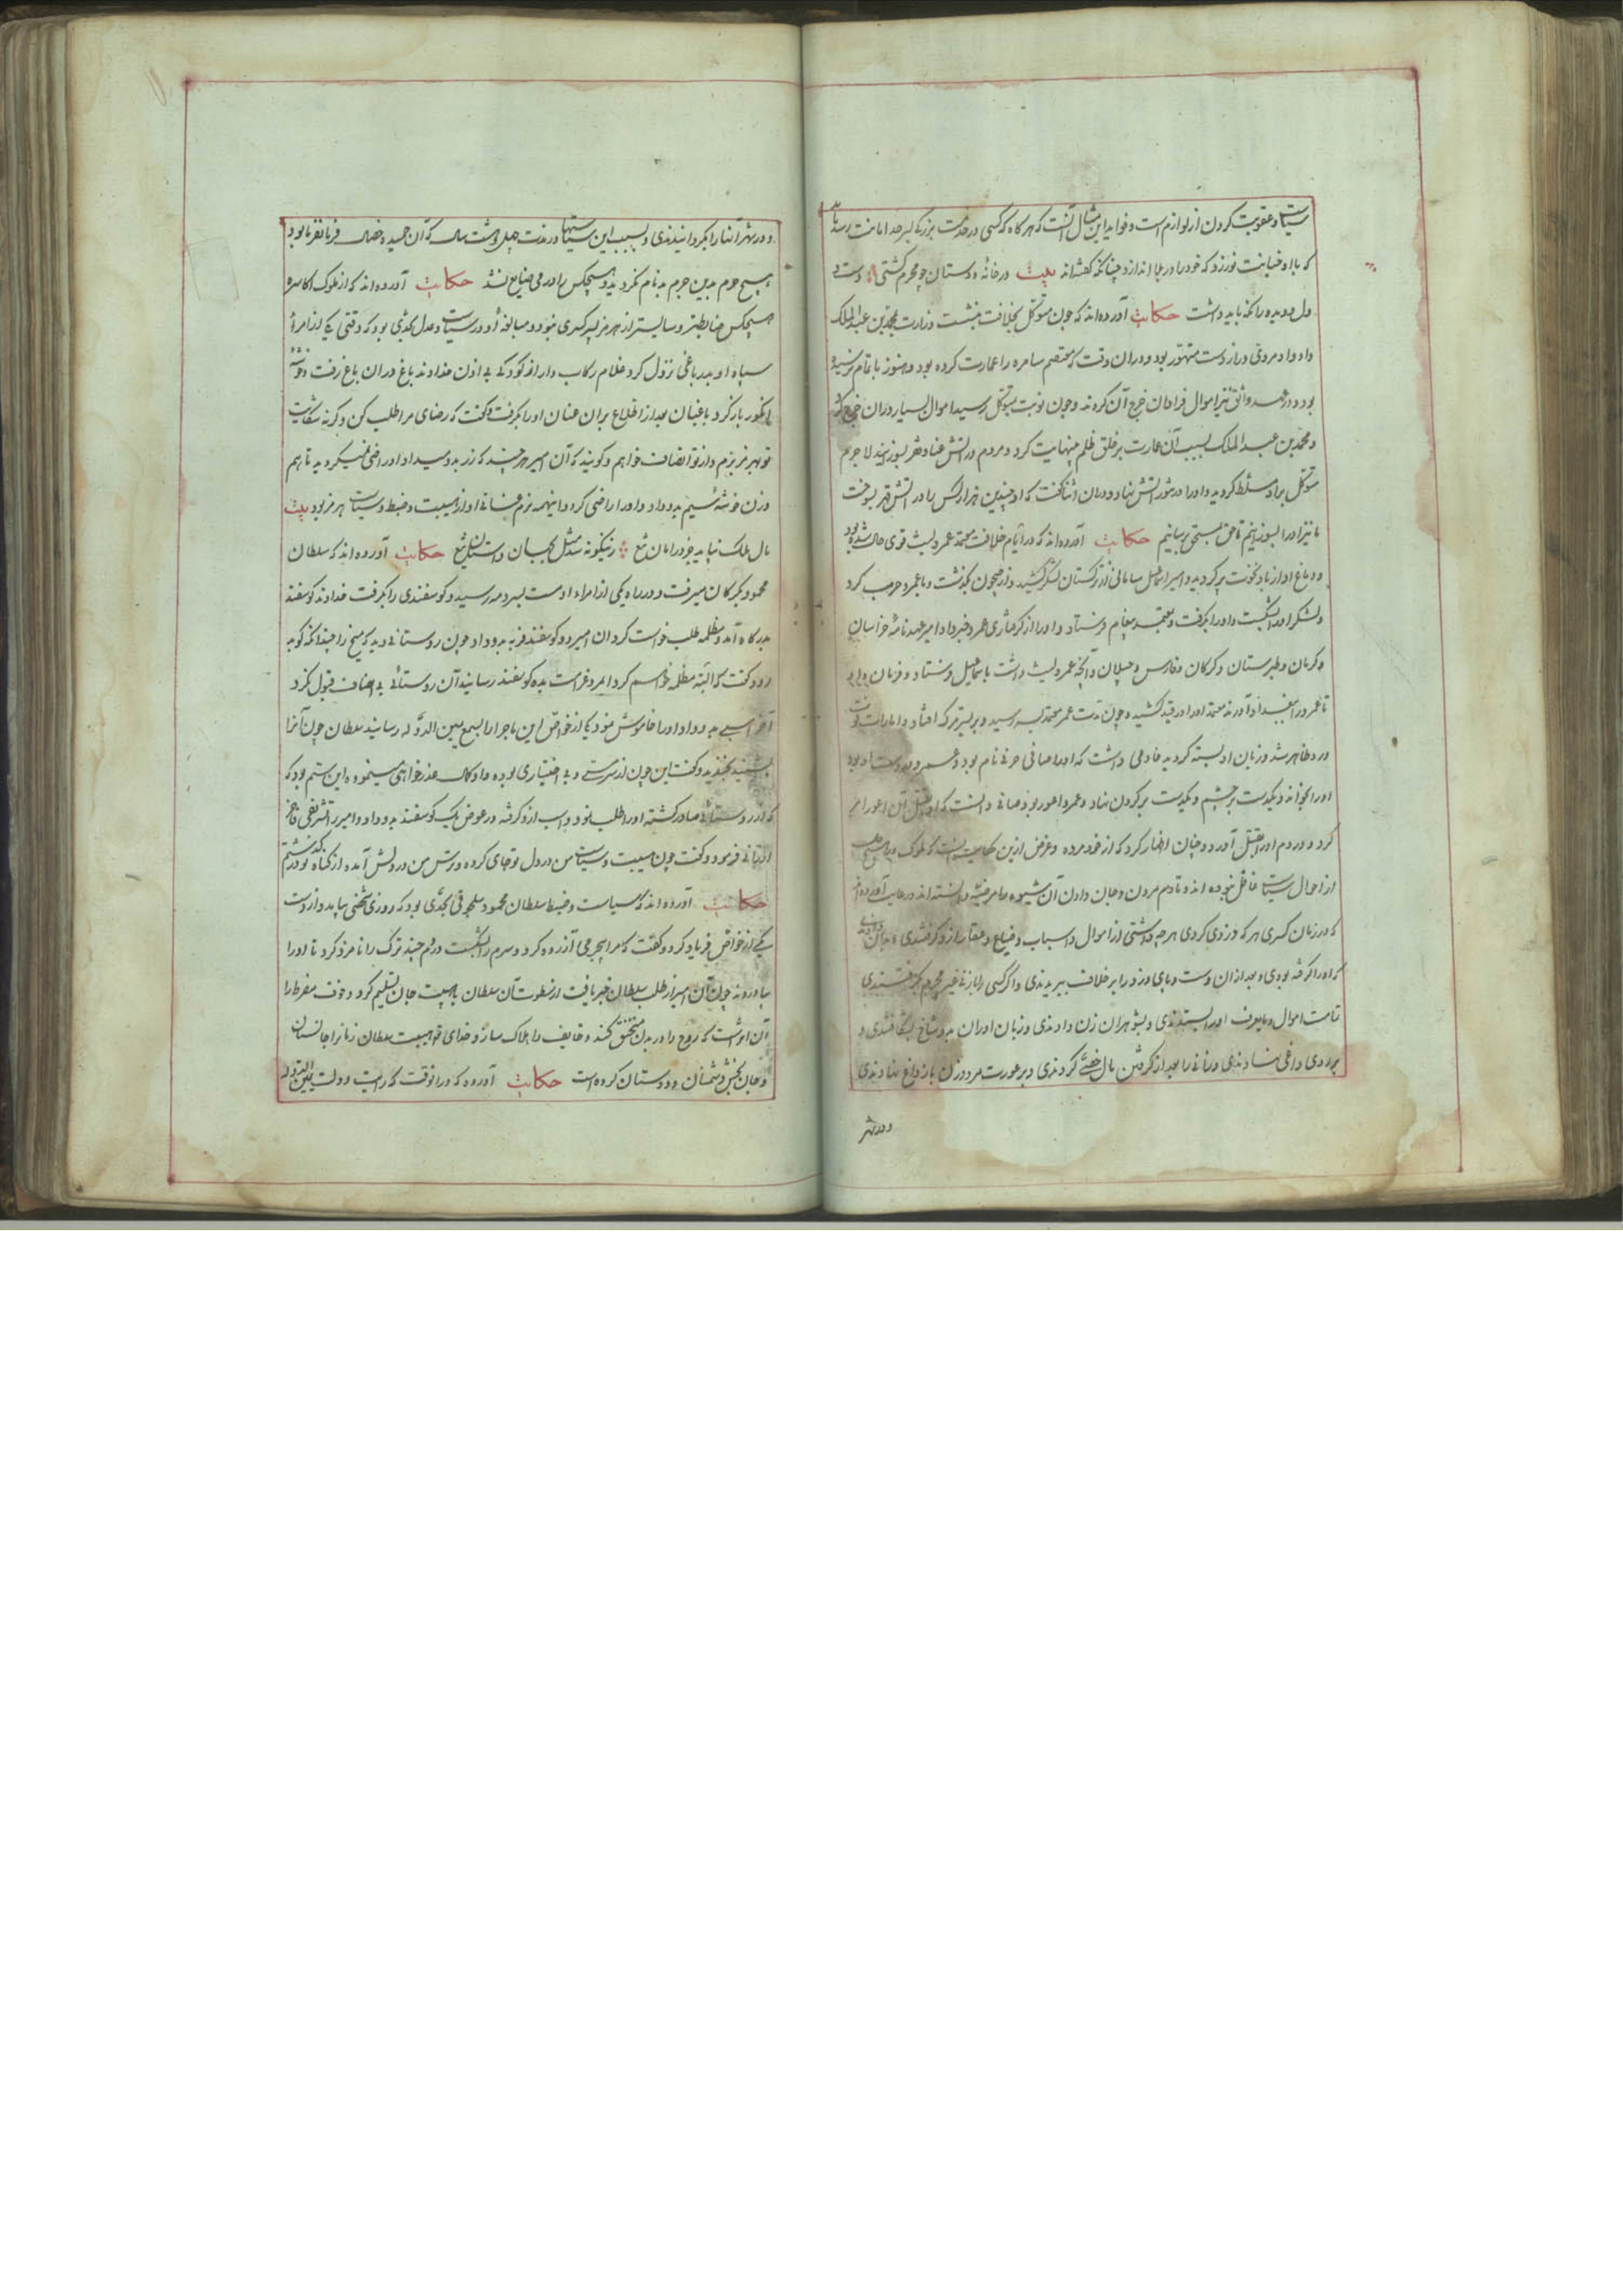 سیاست و عقوبت کردن از لوازم است و فواید این مثال آنست که هر گاه که کسی در خدمت بزرگی بسر حد امانت رسد باید
که با او خیانت نورزد که خود را در بلا اندازد چنانکه گفته‌اند بیت در خانهٔ دوستان چو محرم گشتی دست و
دل و دیده را نگه باید داشت حکایت آورده‌اند که چون متوکل بخلافت بنشست وزارت محمد بن عبد الملک
داد و او مردی دراز دست متهور بود و در آن وقت که معتصم سامره را عمارت کرده بود و هنوز باتمام نرسیده
بود و در عهد واثق نیز اموال فراوان خرج آن کردند و چون نوبت بمتوکل رسید اموال بسیار در آن خرج کرد
و محمد بن عبد الملک بسبب آن عمارت بر خلق ظلم بینهایت کرد و مردم در آتش عنا و قهر بسوزانید لاجرم
متوکل بر او مسلط گردید و او را در تنور آتش نهاد و در آن اثنا گفت که او چندین هزار کس را در آتش قهر بسوخت
ما نیز او را بسوزانیم تا حق بمستحق برسانیم حکایت آورده‌اند که در ایام خلافت معتمد عمرو لیث قوی حال شده بود
و دماغ او از باد نخوت پر گردید و امیر اسمعیل سامانی از ترکستان لشکر کشید و از جیحون بگذشت و با عمرو حرب کرد
و لشکر او را بشکست و او را بگرفت و بمعتمد پیغام فرستاد و او را از گرفتاری عمرو خبر داد امیر عهد نامهٔ خراسان
و کرمان و طبرستان و گرگان و فارس و جیلان و آنچه عمرو لیث داشت باسماعیل فرستاد و فرمان داد
تا عمرو را ببغداد آورند معتمد او را در قید کشید و چون مدت عمر معتمد بسر رسید و بر بستر مرگ افتاد و امارات فوت
درو ظاهر شد و زبان او بسته گردید خادمی داشت که او را صافی حرمی نام بود و عمرو دوست او بود
او را بخواند و یکدست بر چشم و یکدست بر گردن نهاد و عمرو اعور بود صافی دانست که او بقتل آن اعور امر
کرد و در دم او را بقتل آورد و چنان اظهار کرد که از خود مرده و غرض ازین حکایت آنست که ملوک در هیچ
از احوال سیاست غافل نبوده اند و تا دم مردن و جان دادن آن شیوه را مرضیه دانسته اند در حکایت آورده‌اند
که در زمان کسری هر که دزدی کردی هر چه داشتی از اموال و اسباب و ضیاع و عقار ازو گرفتندی
که او را گرفته بودی و بعد از آن دست و پای دزد را بر خلاف ببریدندی و اگر کسی را با زنی غیر محرم بگرفتندی
تمامت اموال و مایعرف او را بستدندی و بشوهر آن زن دادندی و زبان او را ن بدو شاخ بشکافتندی و
بر روی داغی نهادندی و زانی را بعد از گرفتن مال خصی کردندی و بر عورت مرد و زن باز داغ نهادندی
و در شهر
و در شهر آنها را بگردانیدندی و بسبب این سیاستها در مدت چهل و هشت سال که آن حمیده خصال فرمانفرما بود
هیچ حرم بدین جرم بدنام نگردید و هیچکس را درمی ضایع نشد حکایت آورده‌اند که از ملوک اکاسره
هیچکس ضابطتر و سایستر از هرمز پسر کسری نبود و مبالغهٔ او در سیاست و عدل بحدی بود که وقتی یکی از امرأ
سپاه او بدر باغی نزول کرد غلام رکاب دار او کودکی بی اذن خداوند باغ در آن باغ رفت و خوشهٔ
انگور باز کرد باغبان بعد از اطلاع بر آن عنان او را بگرفت و گفت که رضای مرا طلب کن و گرنه شکایت
تو بهرمز برم و از تو انصاف خواهم و گویند که آن امیر هر چند که زر بدو میداد او راضی نمیگردید تا بهم
وزن خوشه سیم بدو داد و او را راضی کرد و اینهمه بزم عنانی او از هیبت و ضبط و سیاست هرمز بود بیت
مال ملک نیابد جز در امان تیغ زینگونه شد مثل بجهان داستان تیغ حکایت آورده‌اند که سلطان
محمود بگرگان میرفت و در راه یکی از امراء او مست بسر دمه رسید و گوسفندی را بگرفت خداوند گوسفند
بدرگاه آمد و مظلمه طلب خواست کرد آن امیر دو گوسفند فربه بدو داد چون روستائی دید که میخ را چندانکه کوبد
رود گفت که البته مظلمه خواهم کرد امیر و غرامت بده گوسفند رسانید آن روستائی بی انصاف قبول نکرد
آخر اسبی بدو داد و او را خاموش نمود یکی از خواص این ماجرا را بسمع یمین الدوله رسانید سلطان چون آنرا
بشنید بخندید و گفت این چون از سر مستی و بی اختیاری بوده و او کمال عذر خواهی مینموده این ستم بود که
از روستائی صادر گشته او را طلب نمود و اسب ازو گرفته در عوض یک گوسفند بدو داد و امیر را تشریفی فاخر
ارزانی فرمود و گفت چون هیبت و سیاست من در دل تو جای کرده و ترس من در دلش آمده از گناه تو در گذشتم
حکایت آورده‌اند که سیاست و ضبط سلطان محمود سلجوقی بحدی بود که روزی شخصی بیامد و از دست
یکی از خواص فریاد کرد و گفت که مرا بیجرمی آزرده کرد و سرم را بشکست در دم چند ترک را نامزد کرد تا او را
بیاورند چون آن امیر از طلب سلطان خبر یافت از سطوت آن سلطان با هیبت جان تسلیم کرد و خوف مفرط را
آن اثر است که روح را در بدن مختنق کند و خایف را هلاک سازد و خدای تع هیبت سلطان زمانرا جانستان
و جان بخش دشمنان و دوستان کرده است حکایت آورده که در آنوقت که رایت دولت یمین الدوله